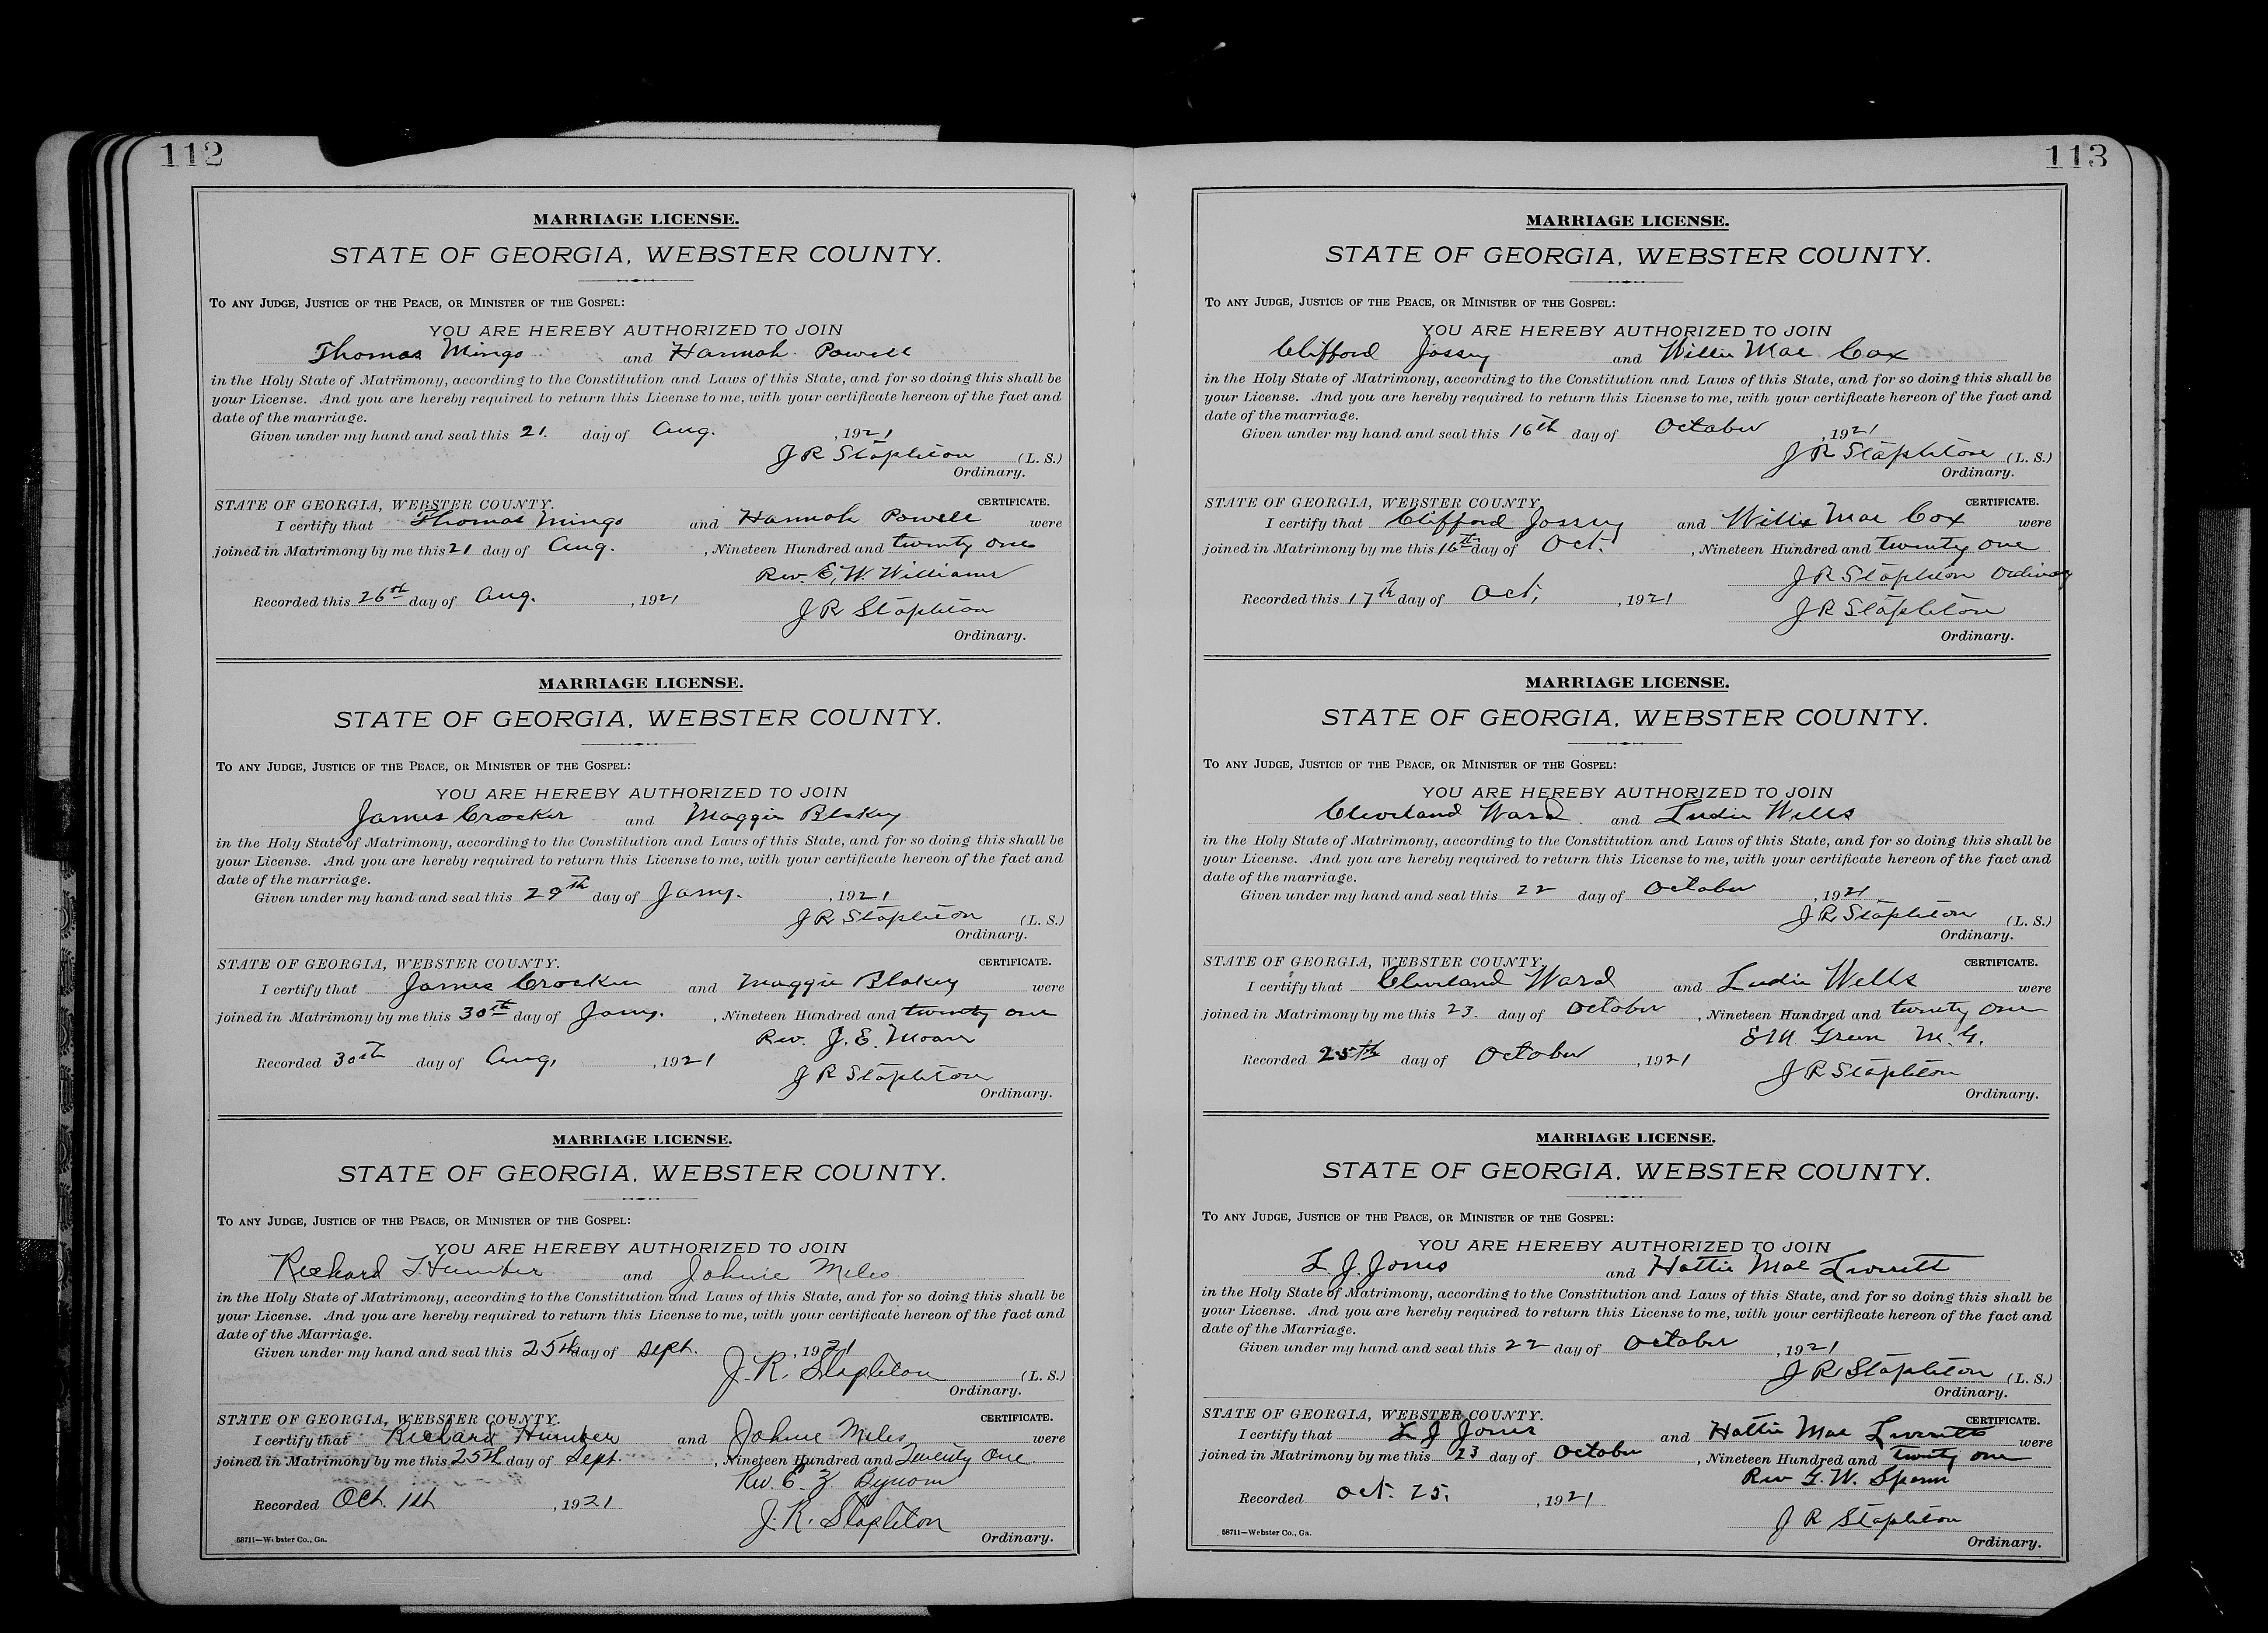 112
MARRIAGE LICENSE.
STATE OF GEORGIA, WEBSTER COUNTY.
TO ANY JUDGE, JUSTICE OF THE PEACE, OR MINISTER OF THE GOSPEL:
YOU ARE HEREBY AUTHORIZED TO JOIN
Thomas Mingo and Hannah Powell
in the Holy State of Matrimony, according to the Constitution and Laws of this State, and for so doing this shall be
your License. And you are hereby required to return this License to me, with your certificate hereon of the fact and
date of the marriage.
Given under my hand and seal this 21. day of Aug. , 1921
J R Stapleton (L. S.)
Ordinary.
STATE OF GEORGIA, WEBSTER COUNTY. CERTIFICATE.
I certify that Thomas Mingo and Hannah Powell were
joined in Matrimony by me this 21 day of Aug. , Nineteen Hundred and twenty one
Rev. E. W. Williams
Recorded this 26th day of Aug. , 1921
J R Stapleton
Ordinary.
MARRIAGE LICENSE.
STATE OF GEORGIA, WEBSTER COUNTY.
TO ANY JUDGE, JUSTICE OF THE PEACE, OR MINISTER OF THE GOSPEL:
YOU ARE HEREBY AUTHORIZED TO JOIN
James Crocker and Maggie Blakey
in the Holy State of Matrimony, according to the Constitution and Laws of this State, and for so doing this shall be
your License. And you are hereby required to return this License to me, with your certificate hereon of the fact and
date of the marriage.
Given under my hand and seal this 29th day of Jany. , 1921
J R Stapleton (L. S.)
Ordinary.
STATE OF GEORGIA, WEBSTER COUNTY. CERTIFICATE.
I certify that James Crocker and Maggie Blakey were
joined in Matrimony by me this 30th day of Jany. , Nineteen Hundred and twenty one
Rev. J. E. Moore
Recorded 30th day of Aug, , 1921
J R Stapleton
Ordinary.
MARRIAGE LICENSE.
STATE OF GEORGIA, WEBSTER COUNTY.
TO ANY JUDGE, JUSTICE OF THE PEACE, OR MINISTER OF THE GOSPEL:
YOU ARE HEREBY AUTHORIZED TO JOIN
Richard Humber and Johnie Miles
in the Holy State of Matrimony, according to the Constitution and Laws of this State, and for so doing this shall be
your License. And you are hereby required to return this License to me, with your certificate hereon of the fact and
date of the Marriage.
Given under my hand and seal this 25th day of Sept. , 1921
J. R. Stapleton (L. S.)
Ordinary.
STATE OF GEORGIA, WEBSTER COUNTY. CERTIFICATE.
I certify that Richard Humber and Johnie Miles were
joined in Matrimony by me this 25th day of Sept. , Nineteen Hundred and Twenty One
Rev. E. Z. Bynom
Recorded Oct. 1st , 1921
J. R. Stapleton
58711—Webster Co., Ga. Ordinary.
113
MARRIAGE LICENSE.
STATE OF GEORGIA, WEBSTER COUNTY.
TO ANY JUDGE, JUSTICE OF THE PEACE, OR MINISTER OF THE GOSPEL:
YOU ARE HEREBY AUTHORIZED TO JOIN
Clifford Jossey and Willie Mae Cox
in the Holy State of Matrimony, according to the Constitution and Laws of this State, and for so doing this shall be
your License. And you are hereby required to return this License to me, with your certificate hereon of the fact and
date of the marriage.
Given under my hand and seal this 16th day of October , 1921
J R Stapleton (L. S.)
Ordinary.
STATE OF GEORGIA, WEBSTER COUNTY. CERTIFICATE.
I certify that Clifford Jossey and Willie Mae Cox were
joined in Matrimony by me this 16th day of Oct. , Nineteen Hundred and twenty one
J R Stapleton Ordinary
Recorded this 17th day of Oct, , 1921
J R Stapleton
Ordinary.
MARRIAGE LICENSE.
STATE OF GEORGIA, WEBSTER COUNTY.
TO ANY JUDGE, JUSTICE OF THE PEACE, OR MINISTER OF THE GOSPEL:
YOU ARE HEREBY AUTHORIZED TO JOIN
Cleveland Ward and Ludie Wells
in the Holy State of Matrimony, according to the Constitution and Laws of this State, and for so doing this shall be
your License. And you are hereby required to return this License to me, with your certificate hereon of the fact and
date of the marriage.
Given under my hand and seal this 22 day of October , 1921
J R Stapleton (L. S.)
Ordinary.
STATE OF GEORGIA, WEBSTER COUNTY. CERTIFICATE.
I certify that Cleveland Ward and Ludie Wells were
joined in Matrimony by me this 23. day of October , Nineteen Hundred and twenty one
Green M. G.
Recorded 25th day of October , 1921
J R Stapleton
Ordinary.
MARRIAGE LICENSE.
STATE OF GEORGIA, WEBSTER COUNTY.
TO ANY JUDGE, JUSTICE OF THE PEACE, OR MINISTER OF THE GOSPEL:
YOU ARE HEREBY AUTHORIZED TO JOIN
L. J. Jones and Hattie Mae Everett
in the Holy State of Matrimony, according to the Constitution and Laws of this State, and for so doing this shall be
your License. And you are hereby required to return this License to me, with your certificate hereon of the fact and
date of the Marriage.
Given under my hand and seal this 22 day of October , 1921
J R Stapleton (L. S.)
Ordinary.
STATE OF GEORGIA, WEBSTER COUNTY. CERTIFICATE.
I certify that L J Jones and Hattie Mae Everett were
joined in Matrimony by me this 23 day of October , Nineteen Hundred and twenty one
Rev G. W. Spann
Recorded Oct. 25, , 1921
J R Stapleton
58711—Webster Co., Ga. Ordinary.